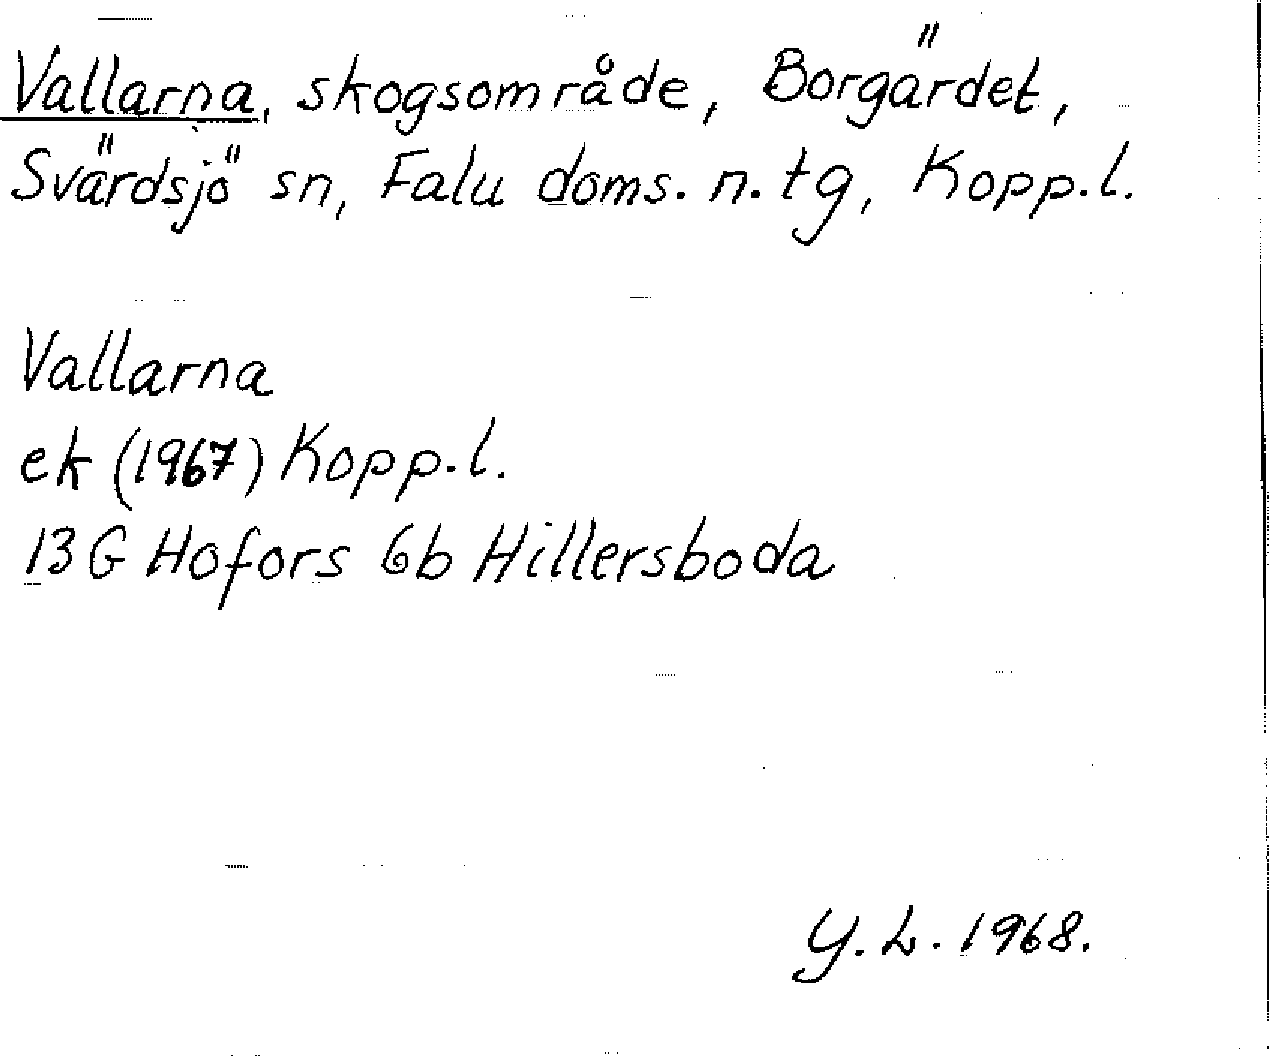 Vallarna, skogsområde, Borgärdet,
Svärdsjö sn, Falu doms. n. tg, Kopp.l.
Vallarna
ek (1967) Kopp.l.
13G Hofors 6b Hillersboda
Y.L. 1968.